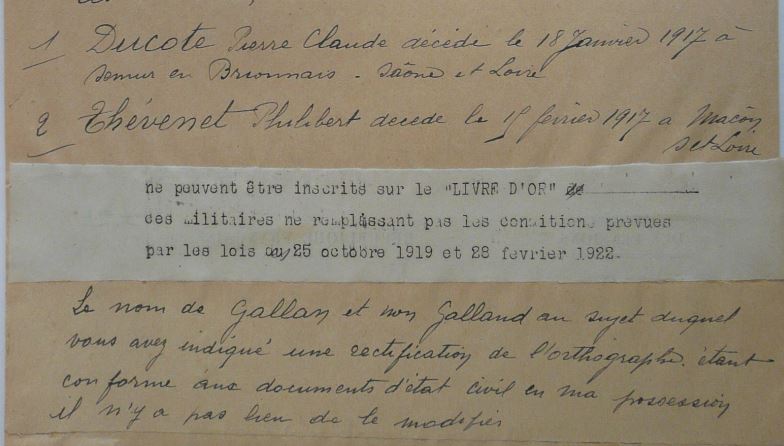 1 Ducote Pierre Claude décédé le 18 Janvier 1917 à
Semur en Brionnais - Saône et Loire
2 Thévenet Philibert decede le 15 février 1917 a Macon
S et Loire
ne peuvent être inscrits sur le "LIVRE D'OR"
ces militaires ne remplissant pas les conditions prevues
par les lois du 25 octobre 1919 et 28 fevrier 1922.
Le nom de Gallan et non Galland au sujet duquel
vous avez indiqué une rectification de l'orthographe, étant
conforme aux documents d'état civil en ma possession
il n'y a pas lieu de le modifier